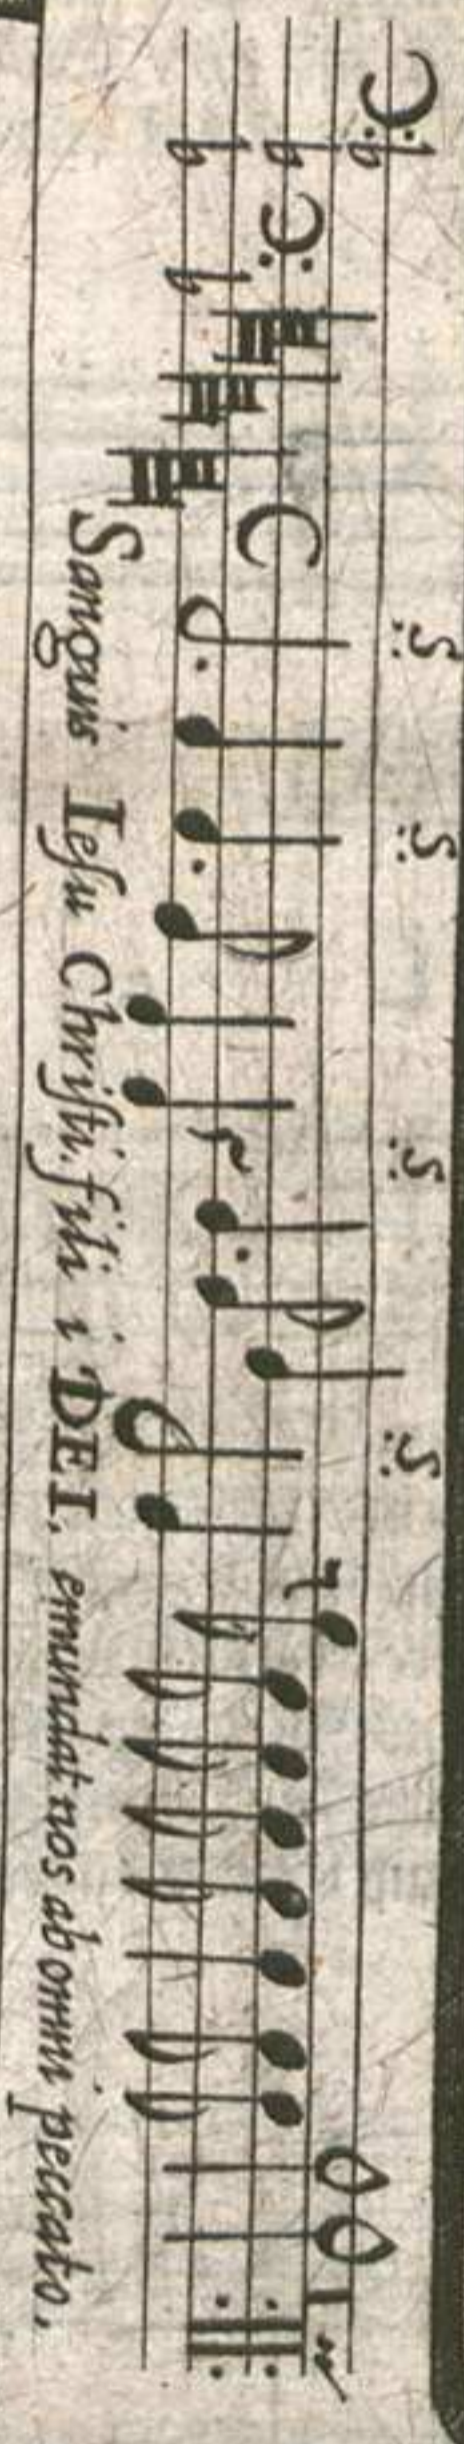 .S. .S. .S. .S.
Sanguis Iesu Christi, fili i DEI, emundat nos ab omni peccato,